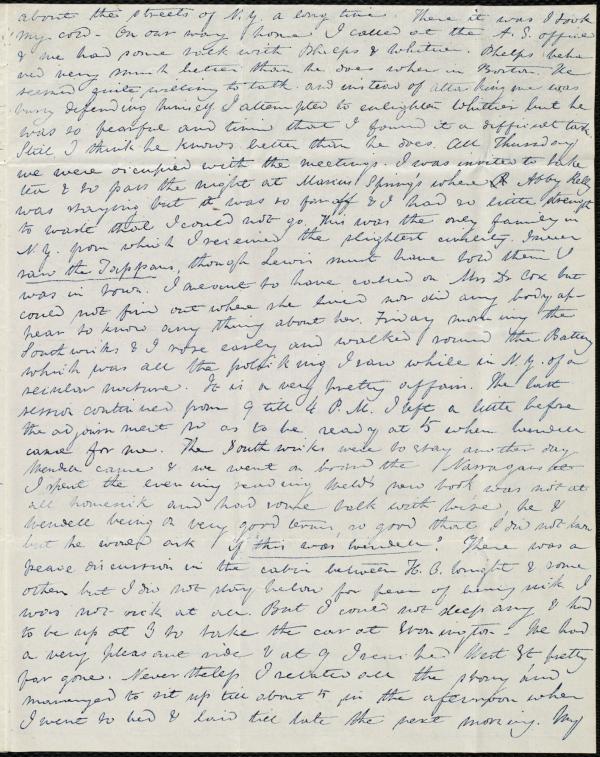 about the streets of N.Y. a long time. There it was I took
my cold. On our way home I called at the A.S. office
& we had some talk with Phelps & Whittier. Phelps beha
ved very much better than he does when in Boston. He
seemed quite willing to talk and instead of attacking me was
busy defending himself I attempted to enlighten Whittier but he
was so fearful and timid that I found it a difficult task.
Still I think he knows better than he does. All Thursday
we were occupied with the meetings. I was invited to take
tea & to pass the night at Marius Springs where Abby Kelly
was staying but it was so far off & I had so little strength
to waste that I could not go. This was the only family in
N.Y. from which I received the slightest civility. I never
saw the Tappans, though Lewis must have told them I
was in town. I meant to have called on Mrs Dr Cox but
could not find out where she lived nor did any body ap-
pear to know any thing about her. Friday morning the
Southwicks & I rose early and walked round the Battery
which was all the I saw while in N.Y. of a
secular nature. It is a very pretty affair. The last
session continued from 9 till 4 P.M. I left a little before
the adjournment so as to be ready at 5 when Wendell
came for me. The Southwicks were to stay another day
Wendell came & we went on board the Narragansett
I spent the evening reading Weld's new book was not at
all homesick and had some talk with Wise, he &
Wendell being on very good terms, so good that I did not know
but he would ask "if this was Wendell". There was a
peace discussion in the cabin between H. C. Wright & some
others but I did not stay below for fear of being sick I
was not sick at all. But I could not sleep any & had
to be up at 3 to take the car at Stonington. We had
a very pleasant ride & at 9 I reached West St pretty
far gone. Nevertheless I related all the story and
managed to sit up till about 5 in the afternoon when
I went to bed & laid till late the next morning. My